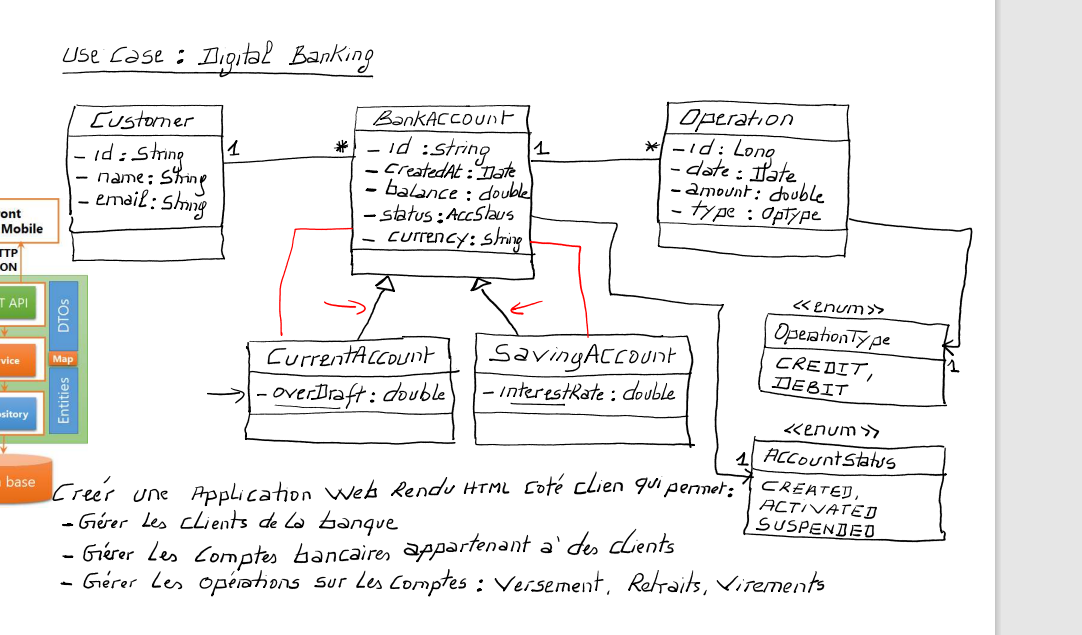 Use Case : Digital Banking
Customer
- id : String
- name : String
- email : String
1
*
BankAccount
- id : String
- createdAt : Date
- balance : double
- status : AccStaus
- currency : String
1
*
Operation
- id : Long
- date : Date
- amount : double
- type : OpType
ont
Mobile
TTP
ON
T API
vice
sitory
base
DTOs
Map
Entities
CurrentAccount
- overDraft : double
SavingAccount
- interestRate : double
<<enum>>
OperationType
CREDIT,
DEBIT
1
<<enum>>
1
AccountStatus
CREATED,
ACTIVATED
SUSPENDED
Créér une Application Web Rendu HTML Coté Clien qui permet :
- Gérer Les clients de La banque
- Gérer Les Comptes bancaires appartenant à des clients
- Gérer Les opérations sur Les Comptes : Versement, Retraits, Virements